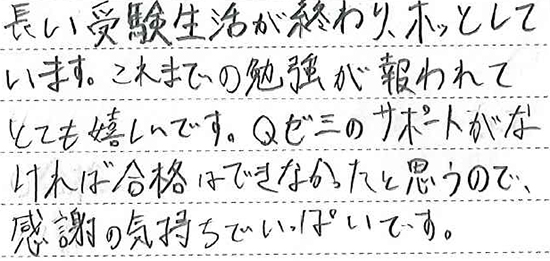 長い受験生活が終わり、ホッとして
います。これまでの勉強が報われて
とても嬉しいです。Qゼミのサポートがな
ければ合格はできなかったと思うので、
感謝の気持ちでいっぱいです。